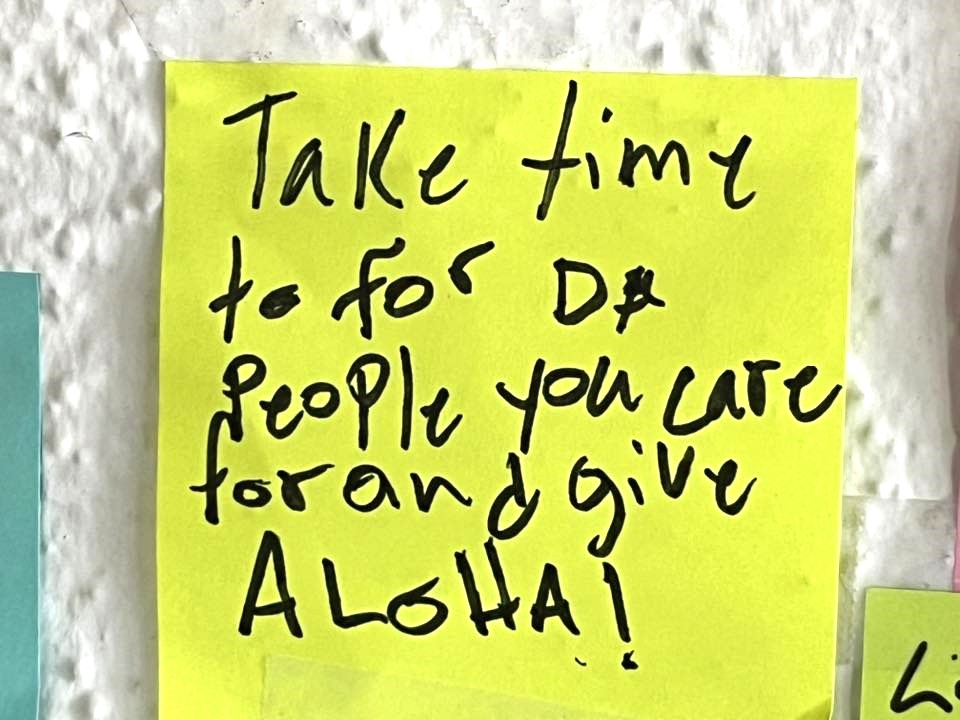 Take time
to for DA
People you care
for and give
ALOHA!
Li